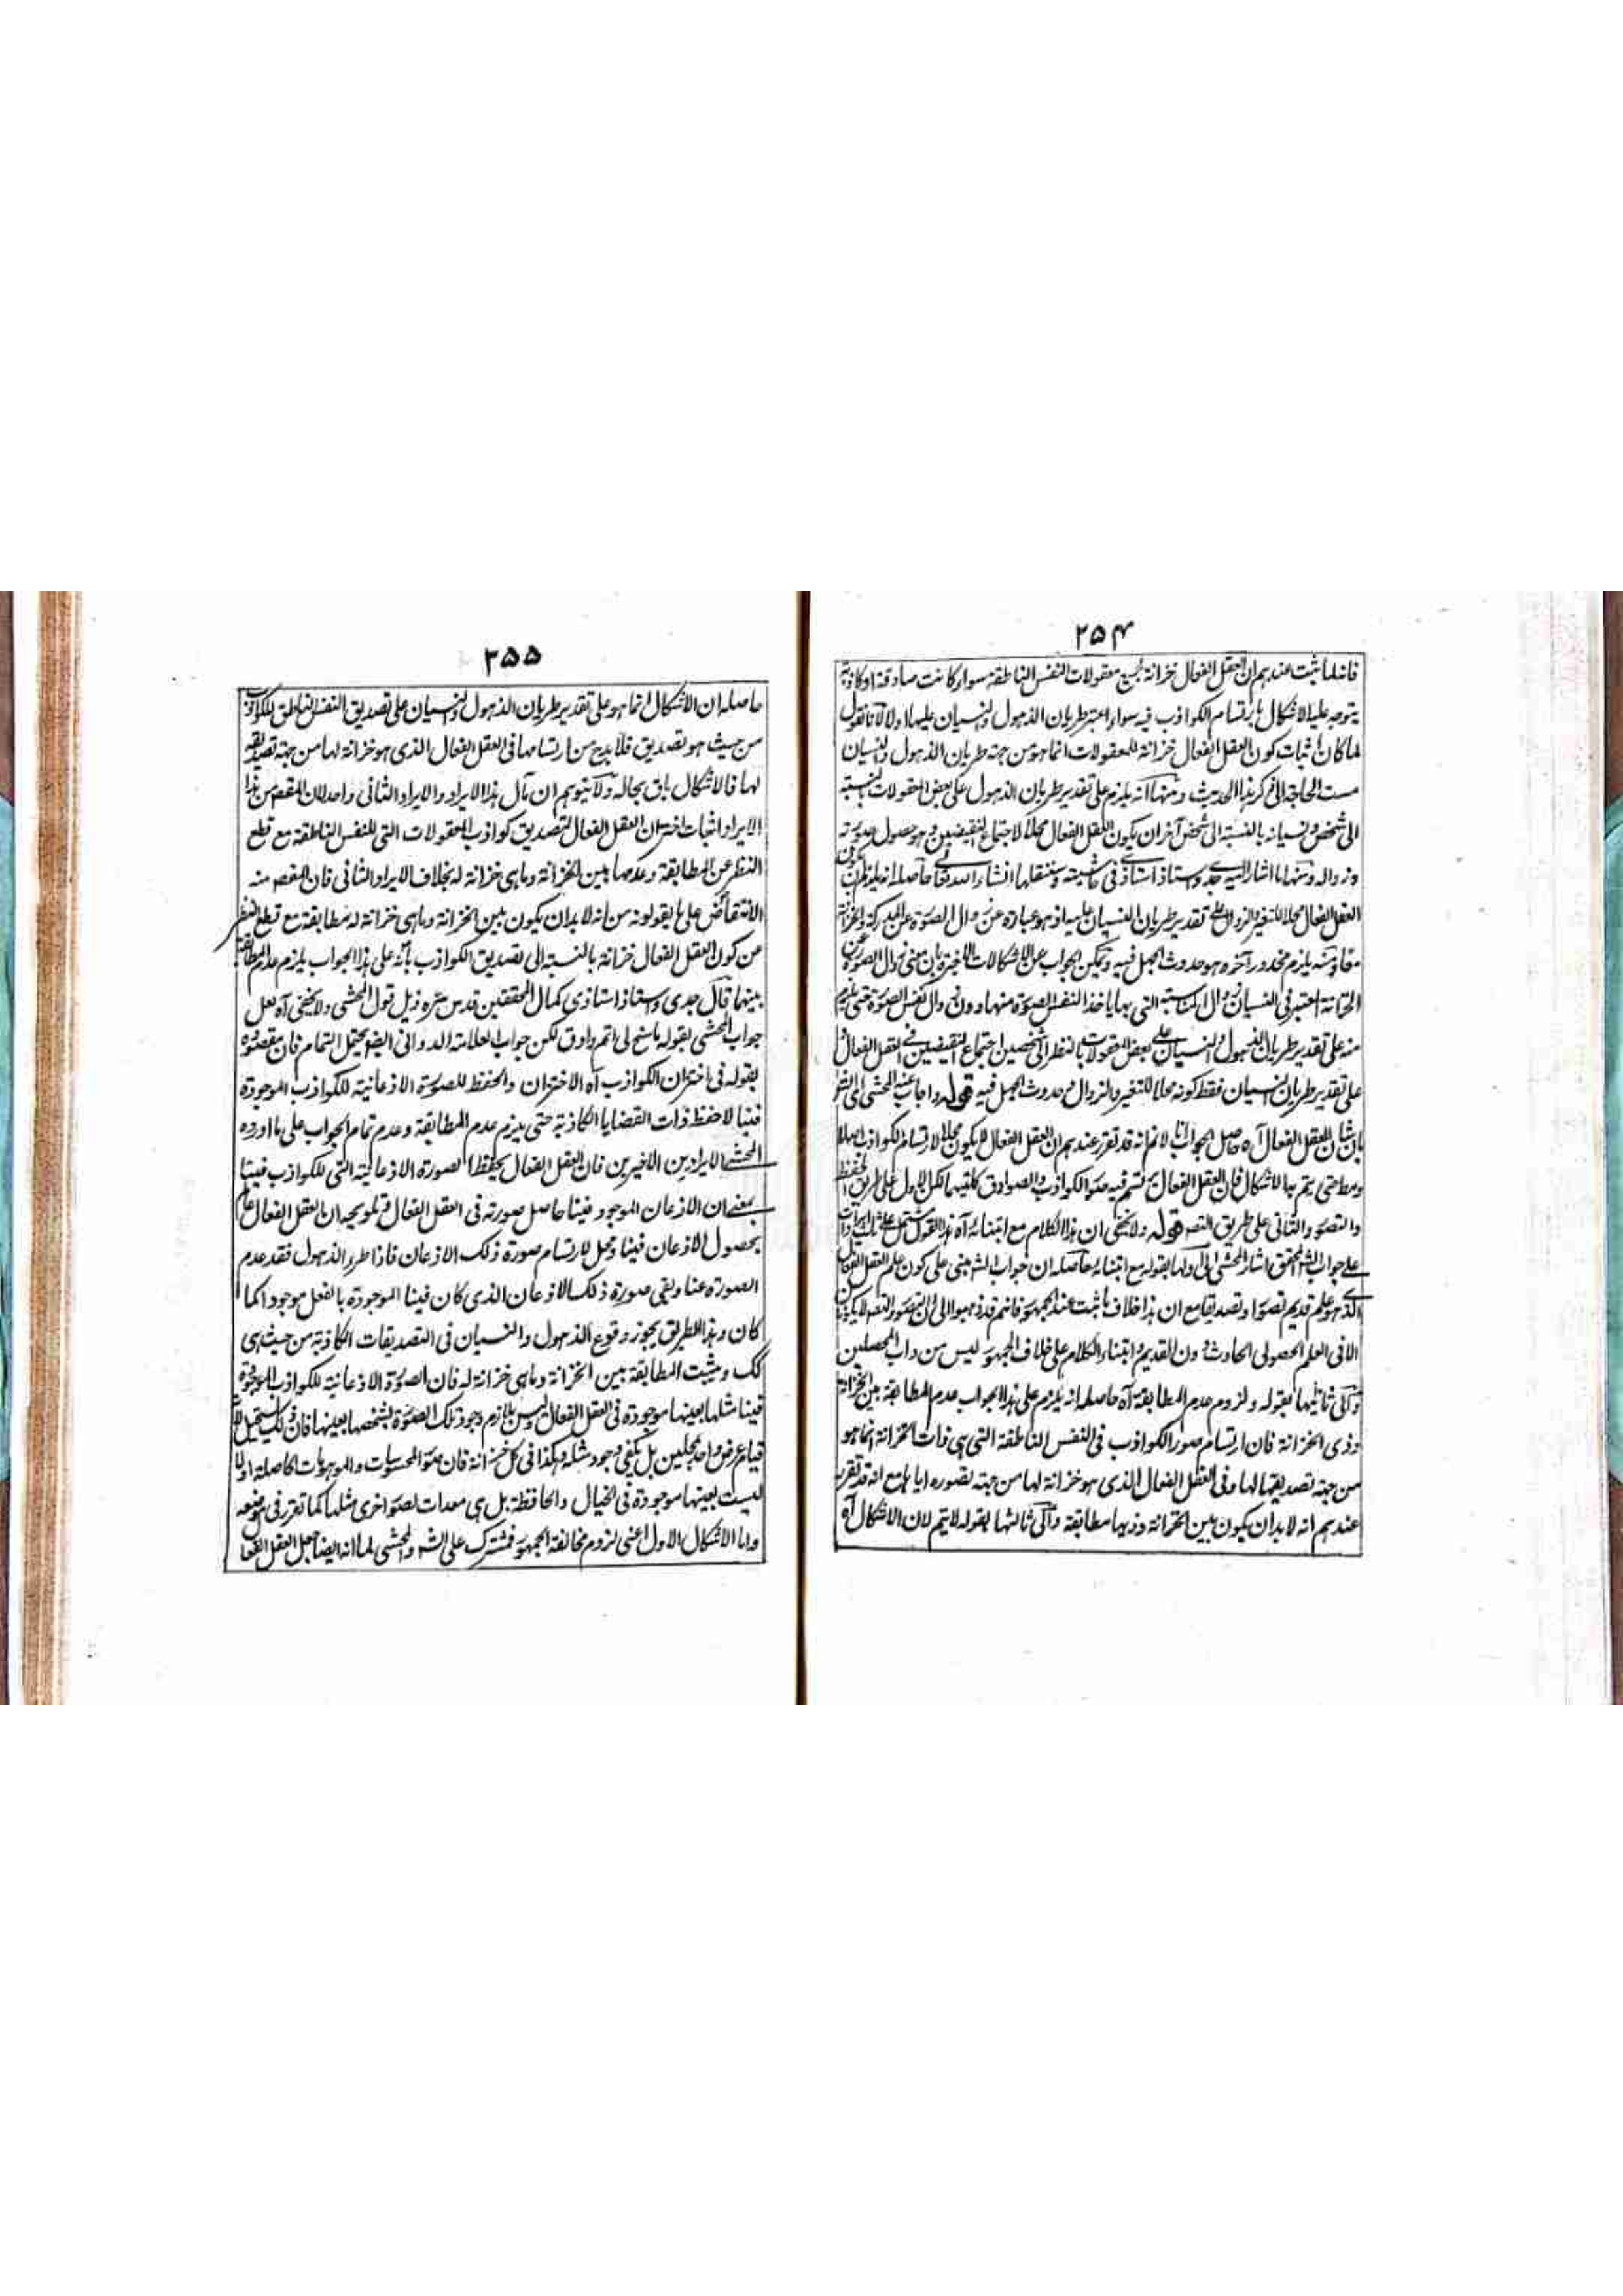 ۲۵۴
فانه لما ثبت عندهم ان العقل الفعال خزانة لجميع معقولات النفس الناطقة سواء كانت صادقة او كاذبة
يتوجه عليه الاشكال بارتسام الكواذب فيه سواء اعتبر طريان الذهول والنسيان عليها اولا لانا نقول
لما كان اثبات كون العقل الفعال خزانة للمعقولات انما هو من جهة طريان الذهول والنسيان
مست الحاجة الى ذكر هذا الحديث ومنها انه يلزم على تقدير طريان الذهول على بعض المعقولات بالنسبة
الى شخص ونسيانه بالنسبة الى شخص آخر ان يكون العقل الفعال محلا لاجتماع النقيضين وهو حصول صورته
وزواله ومنها ما اشار اليه جدى واستاذ استاذى فى حاشيته وسننقلها انشاء الله تعالى حاصله انه يلزم كون
العقل الفعال محلا للتغير والزوال على تقدير طريان النسيان عليه اذ هو عبارة عن زوال الصورة عن المدركة والخزانة
معا ومنه يلزم محذور آخر هو حدوث الجهل فيه ويمكن الجواب عن الاشكالات الاخيرة بان معنى زوال الصورة عن
الخزانة المعتبر فى النسيان زوال المناسبة التى بها ياخذ النفس الصورة منها دون زوال نفس الصورة حتى يلزم
منه على تقدير طريان الذهول والنسيان على بعض المعقولات بالنظر الى شخصين اجتماع النقيضين فى العقل الفعال
على تقدير طريان النسيان فقط كونه محلا للتغير والزوال وحدوث الجهل فيه قوله واجاب عنه المحشى
بان شان العقل الفعال آه حاصل الجواب انا لا نم انه قد تقرر عندهم ان العقل الفعال لا يكون محلا لارتسام الكواذب اصلا
ومطلقا حتى يتم بها الاشكال فان العقل الفعال يرتسم فيه صور الكواذب والصوادق كلتيهما لكن الاول على طريق الحفظ
والتصور والثانى على طريق التصديق قوله ولا يخفى ان هذا الكلام مع ابتنائه آه هذا القول مشتمل على ثلث ايرادات
على جواب الشارح المحقق اشار المحشى الى اولها بقوله مع ابتنائه حاصله ان جواب الشه مبنى على كون علم العقل الفعال
الذى هو علم قديم تصورا وتصديقا مع ان هذا خلاف ما ثبت عند الجمهور فانهم قد ذهبوا الى ان التصور والتصديق لا يكونان
الا فى العلم الحصولى الحادث دون القديم وابتناء الكلام على خلاف الجمهور ليس من داب المحصلين
والى ثانيها بقوله ولزوم عدم المطابقة آه حاصله انه يلزم على هذا الجواب عدم المطابقة بين الخزانة
وذى الخزانة فان ارتسام صور الكواذب فى النفس الناطقة التى هى ذات الخزانة انما هو
من جهة تصديقها لها وفى العقل الفعال الذى هو خزانة لها من جهة تصوره اياها مع انه قد تقرر
عندهم انه لا بد ان يكون بين الخزانة وذيها مطابقة والى ثالثها بقوله لا يتم لان الاشكال آه
۲۵۵
حاصله ان الاشكال انما هو على تقدير طريان الذهول والنسيان على تصديق النفس الناطقة للكواذب
من حيث هو تصديق فلا بد ح من ارتسامها فى العقل الفعال الذى هو خزانة لها من جهة تصديقه
لها فالاشكال باق بحاله ولا يتوهم ان مآل هذا الايراد والايراد الثانى واحد لان المقصم من هذا
الايراد اثبات اختزان العقل الفعال لتصديق كواذب المعقولات التى للنفس الناطقة مع قطع
النظر عن المطابقة وعدمها بين الخزانة وما هى خزانة له بخلاف الايراد الثانى فان المقصم منه
الانتقاض على ما يقولونه من انه لا بد ان يكون بين الخزانة وما هى خزانة له مطابقة مع قطع النظر
عن كون العقل الفعال خزانة بالنسبة الى تصديق الكواذب بانه على هذا الجواب يلزم عدم المطابقة
بينهما قال جدى واستاذ استاذى كمال المحققين قدس سره ذيل قول المحشى ولا يخفى آه لعل
جواب المحشى بقوله ما سنح لى اتم وادق لكن جواب العلامة الدوانى ايضا يحتمل التمام فان مقصوده
بقوله فى اختزان الكواذب آه الاختزان والحفظ للصورة الاذعانية للكواذب الموجودة
فينا لا حفظ ذات القضايا الكاذبة حتى يلزم عدم المطابقة وعدم تمام الجواب على ما اورده
المحشى الايرادين الاخيرين فان العقل الفعال يحفظ الصورة الاذعانية التى للكواذب فينا
بمعنى ان الاذعان الموجود فينا حاصل صورته فى العقل الفعال فلو يوجد ان العقل الفعال عالم
بحصول الاذعان فينا ومحل لارتسام صورة ذلك الاذعان فاذا طرء الذهول فقد عدم
الصورة عنا وبقى صورة ذلك الاذعان الذى كان فينا الموجودة بالفعل موجودا كما
كان وبهذا الطريق يجوز وقوع الذهول والنسيان فى التصديقات الكاذبة من حيث هى
كك ويثبت المطابقة بين الخزانة وما هى خزانة له فان الصورة الاذعانية للكواذب الموجودة
فينا مثلها بعينها موجودة فى العقل الفعال وليس بلازم وجود تلك الصورة بشخصها بعينها فان ذلك مستحيل
قيام عرض واحد بمحلين بل يكفى وجود مثله وهكذا فى كل خزانة فان صور المحسوسات والموهومات الحاصلة اولا
ليست بعينها موجودة فى الخيال والحافظة بل هى معدات لصور اخرى مثلها كما تقرر فى موضعه
واما الاشكال الاول اعنى لزوم مخالفة الجمهور فمشترك على الشه والمحشى لما انه ايضا جعل العقل الفعال